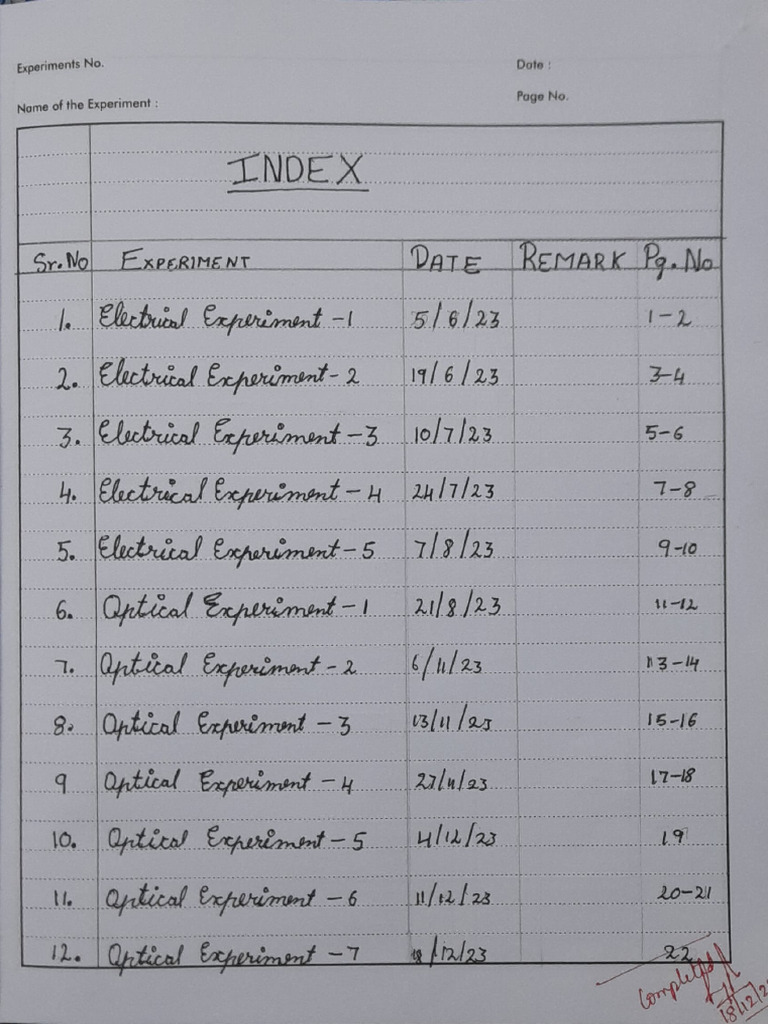 Experiments No. Date :
Name of the Experiment : Page No.
INDEX
Sr.No EXPERIMENT DATE REMARK Pg.No
1. Electrical Experiment -1 5/6/23 1-2
2. Electrical Experiment - 2 19/6/23 3-4
3. Electrical Experiment -3 10/7/23 5-6
4. Electrical Experiment - 4 24/7/23 7-8
5. Electrical Experiment - 5 7/8/23 9-10
6. Optical Experiment - 1 21/8/23 11-12
7. Optical Experiment - 2 6/11/23 13-14
8. Optical Experiment - 3 13/11/23 15-16
9 Optical Experiment - 4 27/11/23 17-18
10. Optical Experiment - 5 4/12/23 19
11. Optical Experiment - 6 11/12/23 20-21
12. Optical Experiment - 7 /12/23 22
Completed
18/12/2